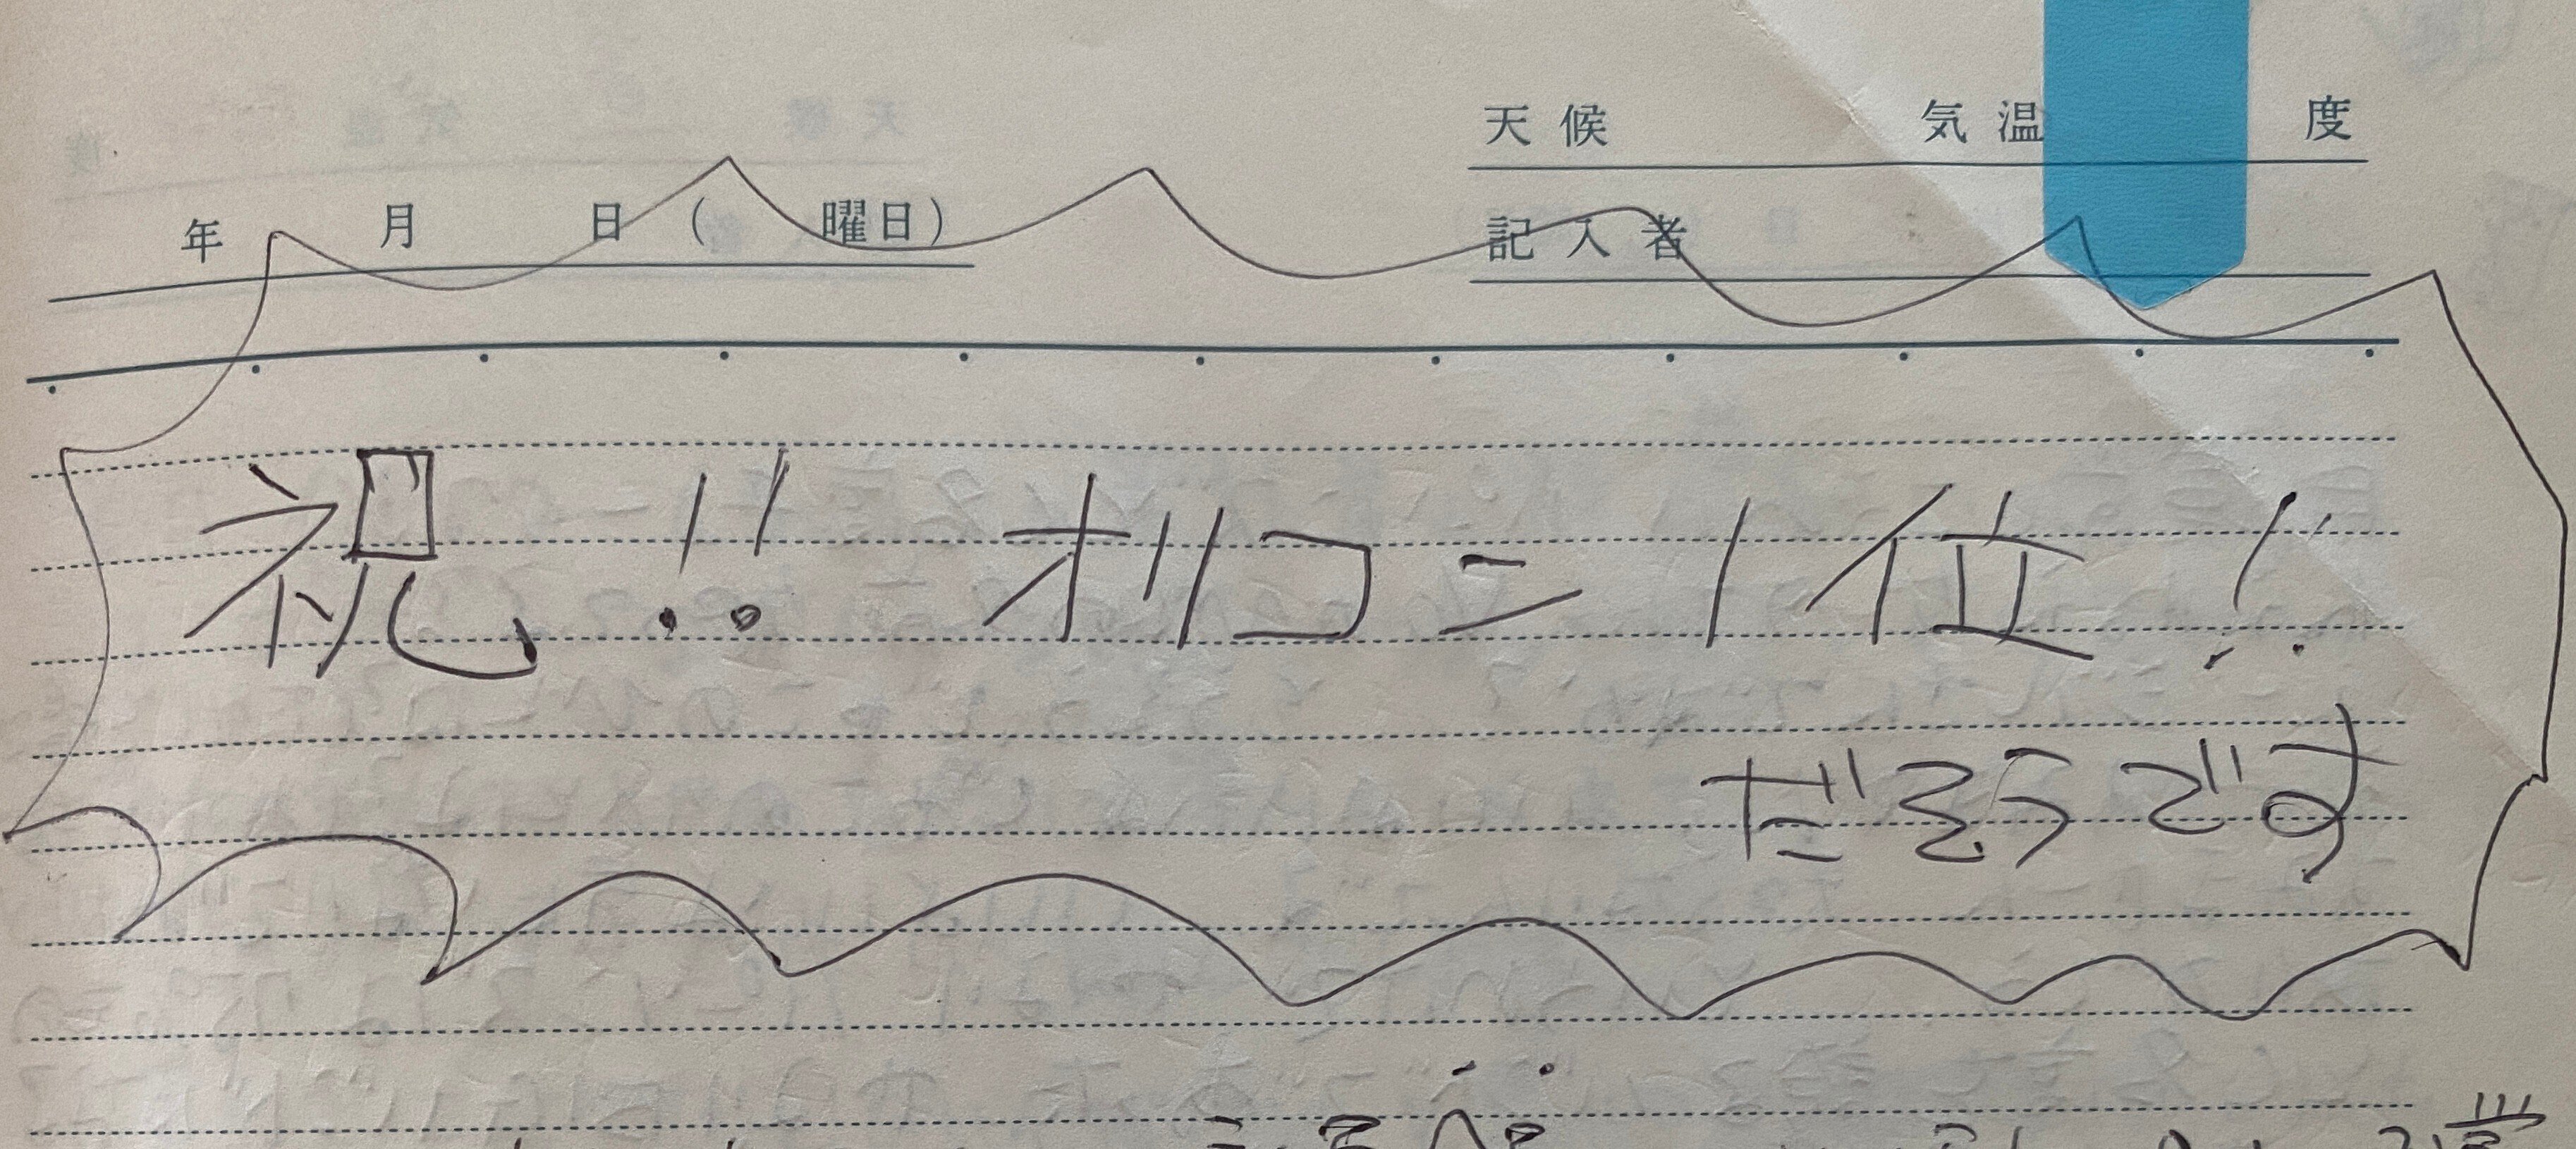 天候 気温 度
年 月 日 ( 曜日)
記入者
祝!! オリコン1位!!
だそうです